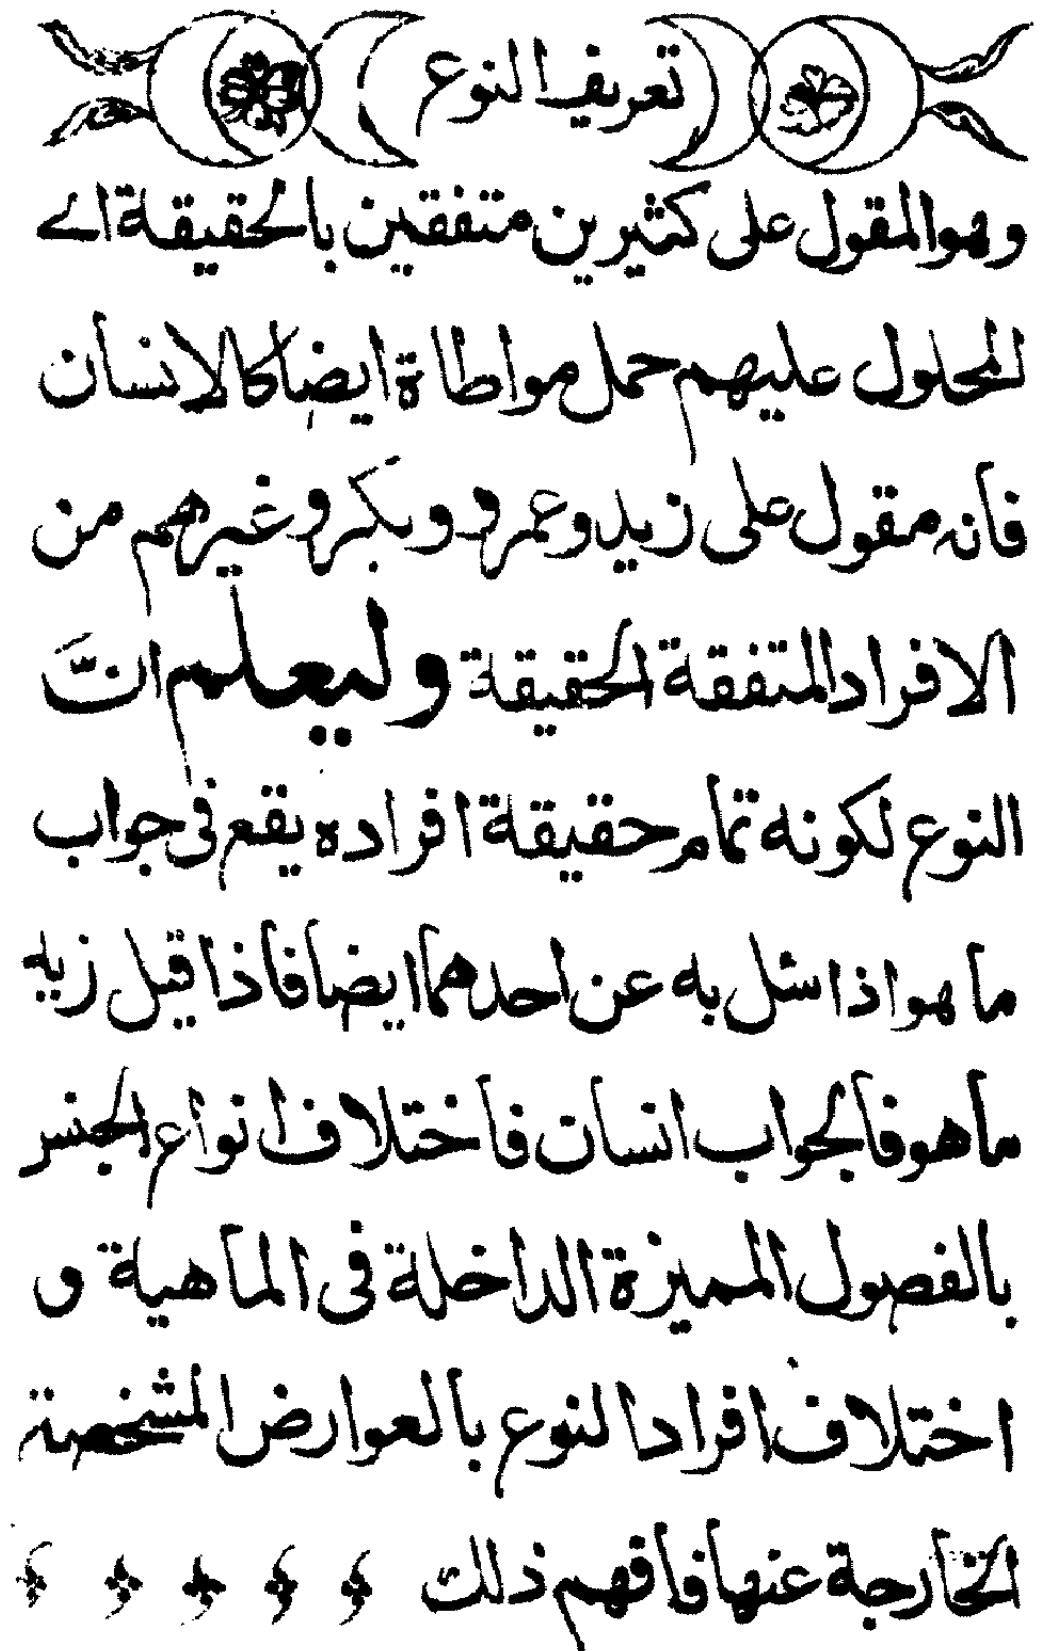 تعريف النوع
وهو المقول على كثيرين متفقين بالحقيقة اے
المحلول عليهم حمل مواطاة ايضا كالانسان
فانه مقول على زيد وعمرو وبكر وغيرهم من
الافراد المتفقة الحقيقة وليعلم انَّ
النوع لكونه تمام حقيقة افراده يقع في جواب
ما هو اذا سئل به عن احدهما ايضا فاذا قيل زيد
ما هو فالجواب انسان فاختلاف انواع الجنس
بالفصول المميزة الداخلة في الماهية و
اختلاف افراد النوع بالعوارض المشخصة
الخارجة عنها فافهم ذلك